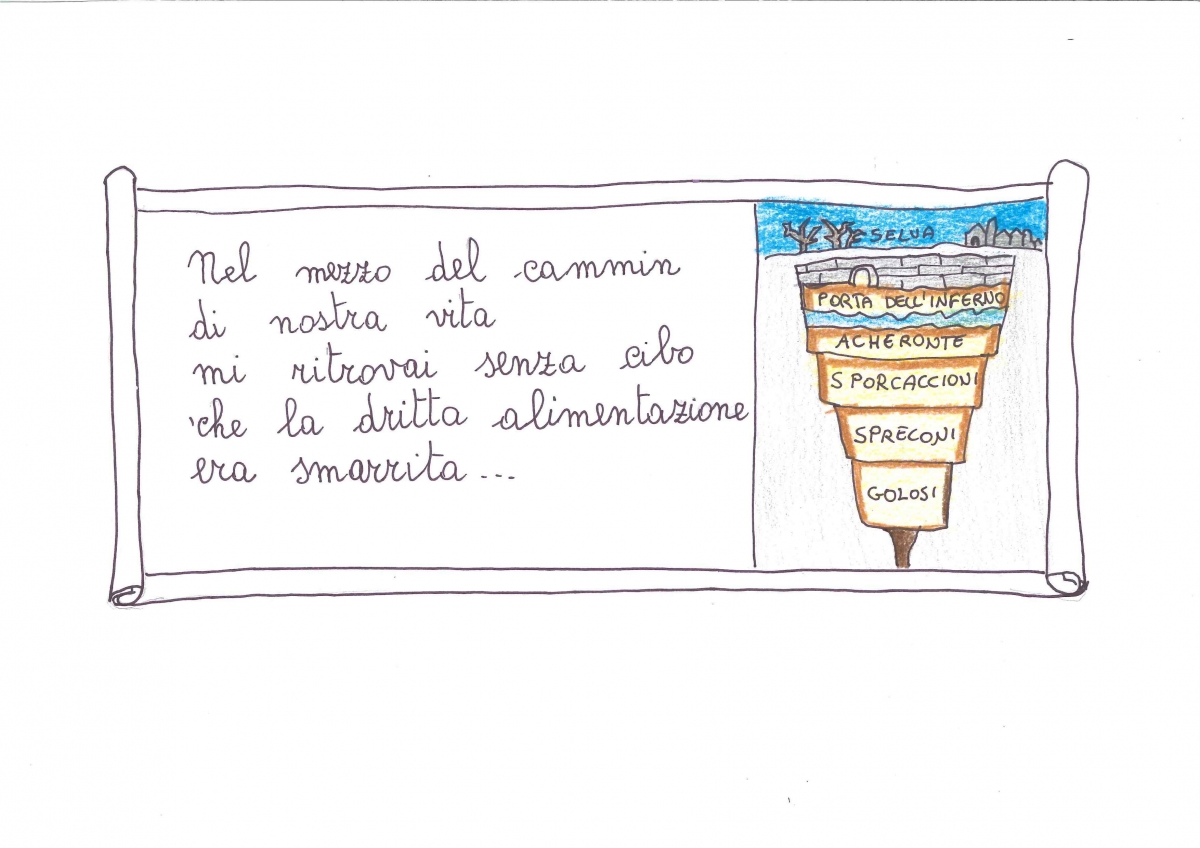 Nel mezzo del cammin
di nostra vita
mi ritrovai senza cibo
'che la dritta alimentazione
era smarrita...
SELVA
PORTA DELL'INFERNO
ACHERONTE
SPORCACCIONI
SPRECONI
GOLOSI